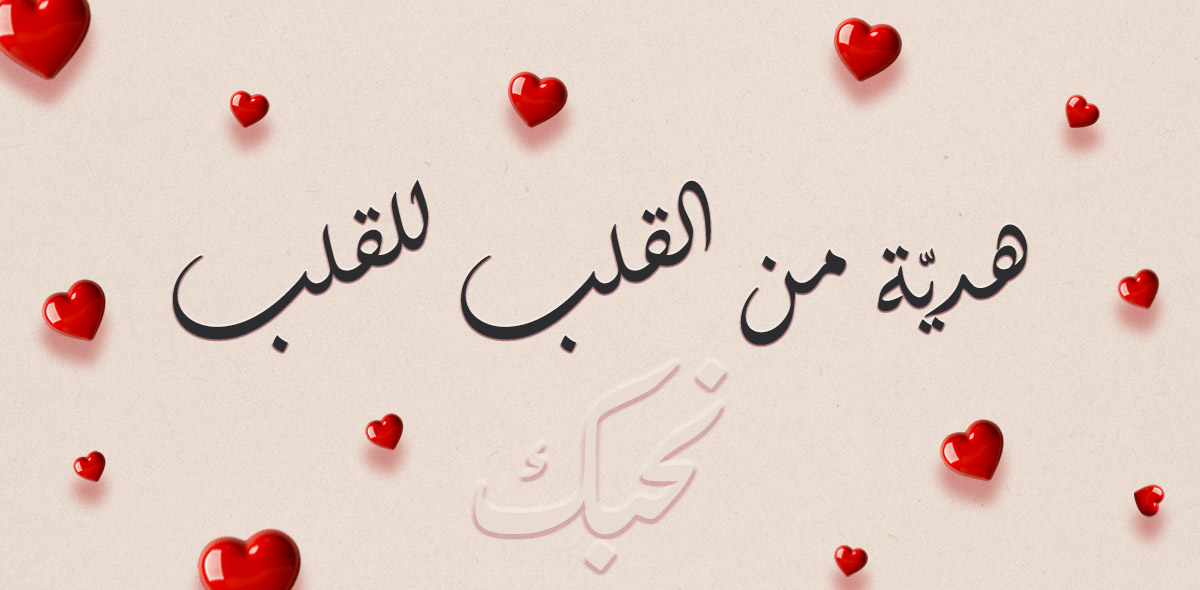 هديّة من القلب للقلب
نحبك